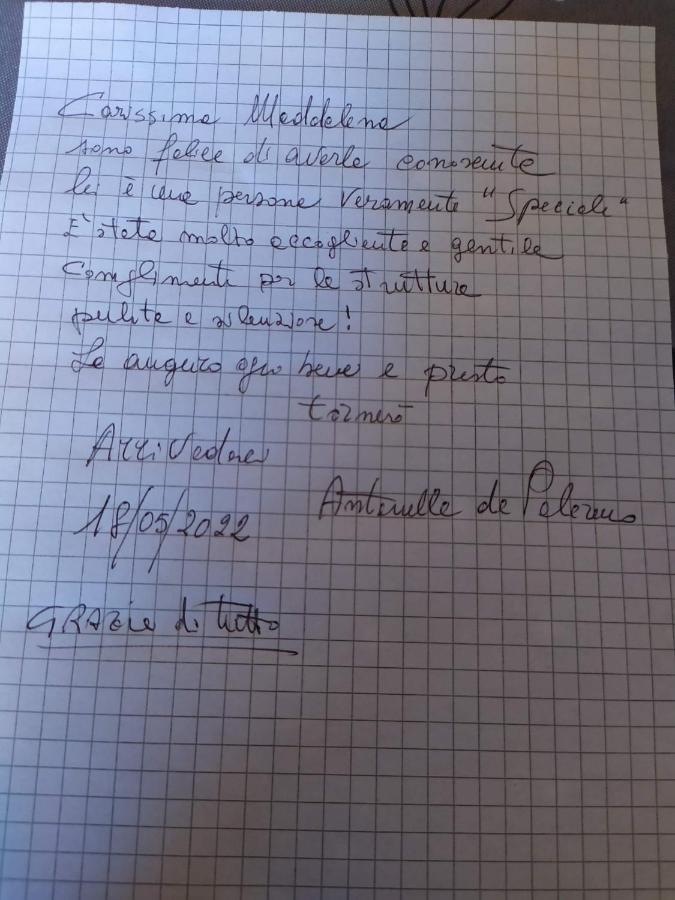 Carissima Maddalena
sono felice di averla conosciuta
lei è una persona veramente "Speciale"
E' stata molto accogliente e gentile
Complimenti per la struttura
pulita e silenziosa!
Le auguro ogni bene e presto
tornerò
ArriVederci
18/05/2022 Antonella da Palermo
GRAZie di tutto